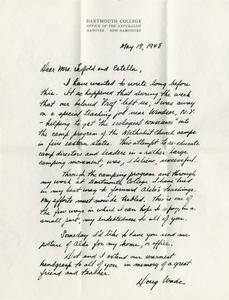 DARTMOUTH COLLEGE
OFFICE OF THE NATURALIST
HANOVER · NEW HAMPSHIRE
May 19, 1948
Dear Mrs. Leopold and Estella:
I have wanted to write long before
this. It so happened that during the week
that our beloved "Prof" left us, I was away
on a special teaching job near Windsor, N.Y.
- helping to get "the ecological conscience" into
the camp program of the Methodist Church camps
in five eastern states. This attempt to so educate
camp directors and leaders in a rather large
camping movement, was, I believe, successful.
Through the camping program and through
my term at Dartmouth College I have tried
in my best way to forward Aldo's teachings.
My efforts must now be trebled. This is one of
the few ways in which I can hope to repay in a
small part, my indebtedness to all of you.
Someday I'd like to have you send me
picture of Aldo for my home, or office.
Dot and I extend our warmest
handgrasp to all of you in memory of a great
friend and teacher.
Doug Wade